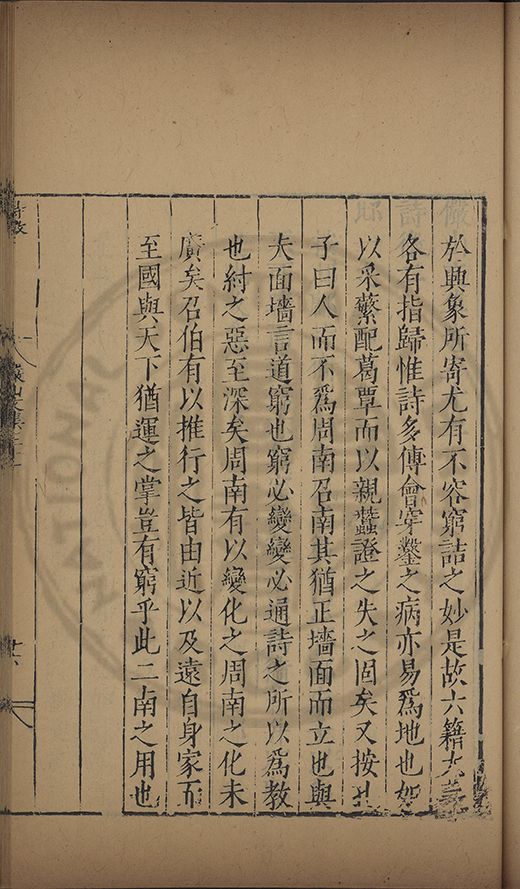 於興象所寄尤有不容窮詰之妙是故六籍
各有指歸惟詩多傳會穿鑿之病亦易爲地也如
以采蘩配葛覃而以親蠶證之失之固矣又按
子曰人而不爲周南召南其猶正墻面而立也與
夫面墻言道窮也窮必變變必通詩之所以爲教
也紂之惡至深矣周南有以變化之周南之化未
廣矣召伯有以推行之皆由近以及遠自身家而
至國與天下猶運之掌豈有窮乎此二南之用也